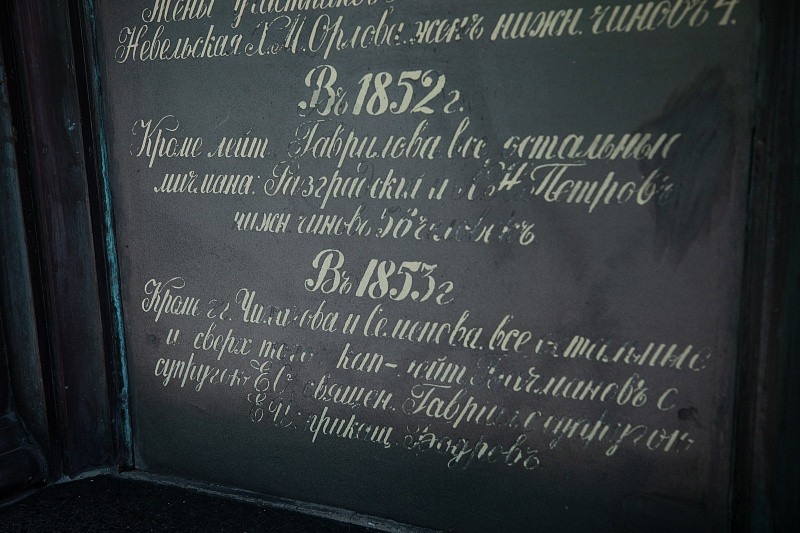 Жены участников
Невельская Х.М.Орлова. женъ нижн. чиновъ 4.
Въ 1852 г.
Кроме лейт Гаврилова все остальные
мичмана: Разградский и Петровъ
нижн. чиновъ человекъ
Въ 1853 г
Кроме г.г. Чихачова и Семенова, все остальные
и сверх того кап-лейт Бачмановъ с
супругою Е священ. Гаврил с супругою
Е прикащ. Бодровъ